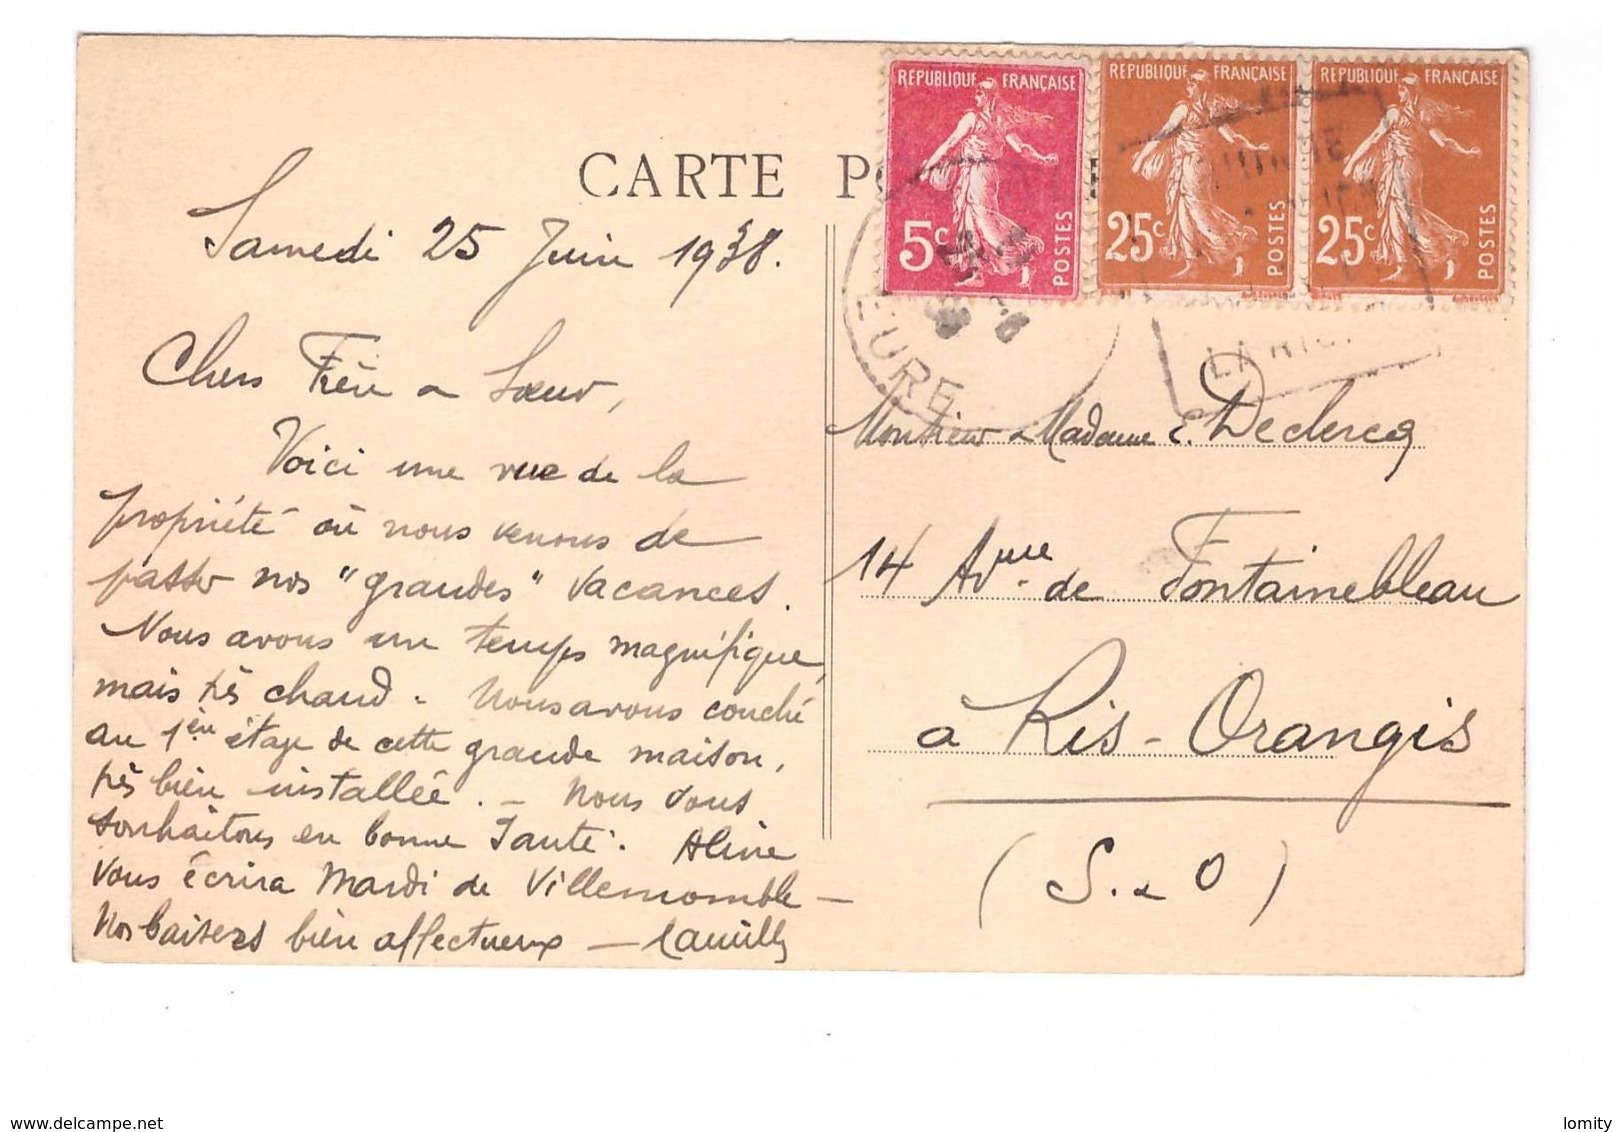 CARTE
REPUBLIQUE FRANÇAISE
5c
POSTES
REPUBLIQUE FRANÇAISE
25c
POSTES
REPUBLIQUE FRANÇAISE
25c
POSTES
EURE
Samedi 25 Juin 1938.
Chers Frère & Soeur,
Voici une vue de la
propriété où nous venons de
passer nos "grandes" vacances.
Nous avons un temps magnifique,
mais très chaud. Nous avons couché
au 1er étage de cette grande maison,
très bien installée. - Nous vous
souhaitons en bonne Santé. Aline
vous écrira Mardi de Villemomble -
Nos baisers bien affectueux -
Monsieur & Madame E. Declercq
14 Avnue de Fontainebleau
à Ris-Orangis
(S. & O)
www.delcampe.net
lomity